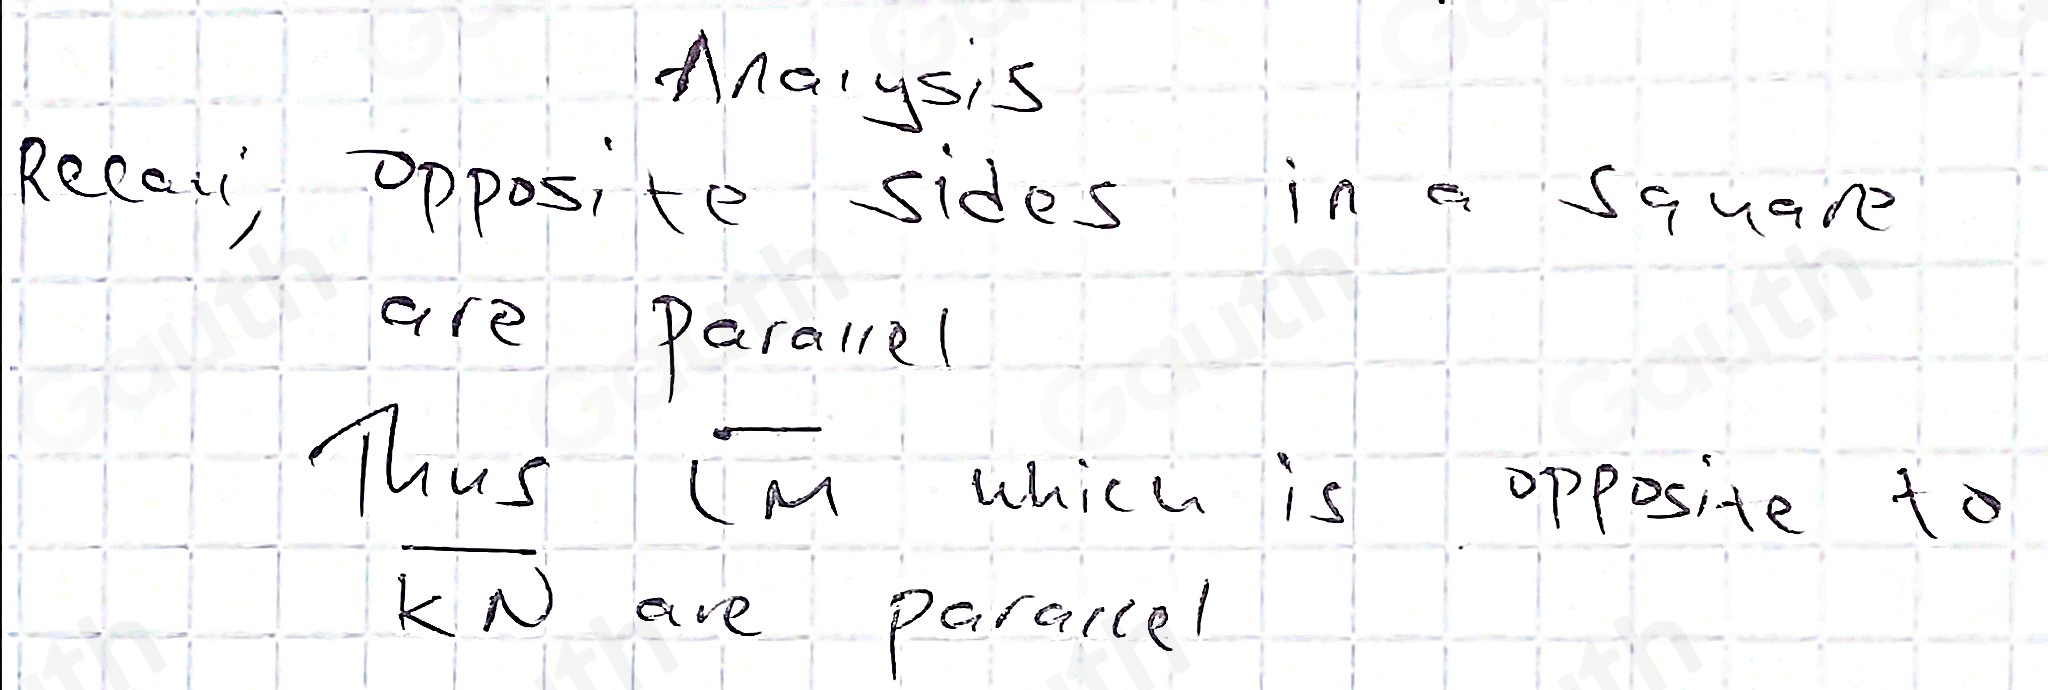 Analysis
Recall, opposite sides in a square
are parallel
Thus LM which is opposite to
KN are parallel